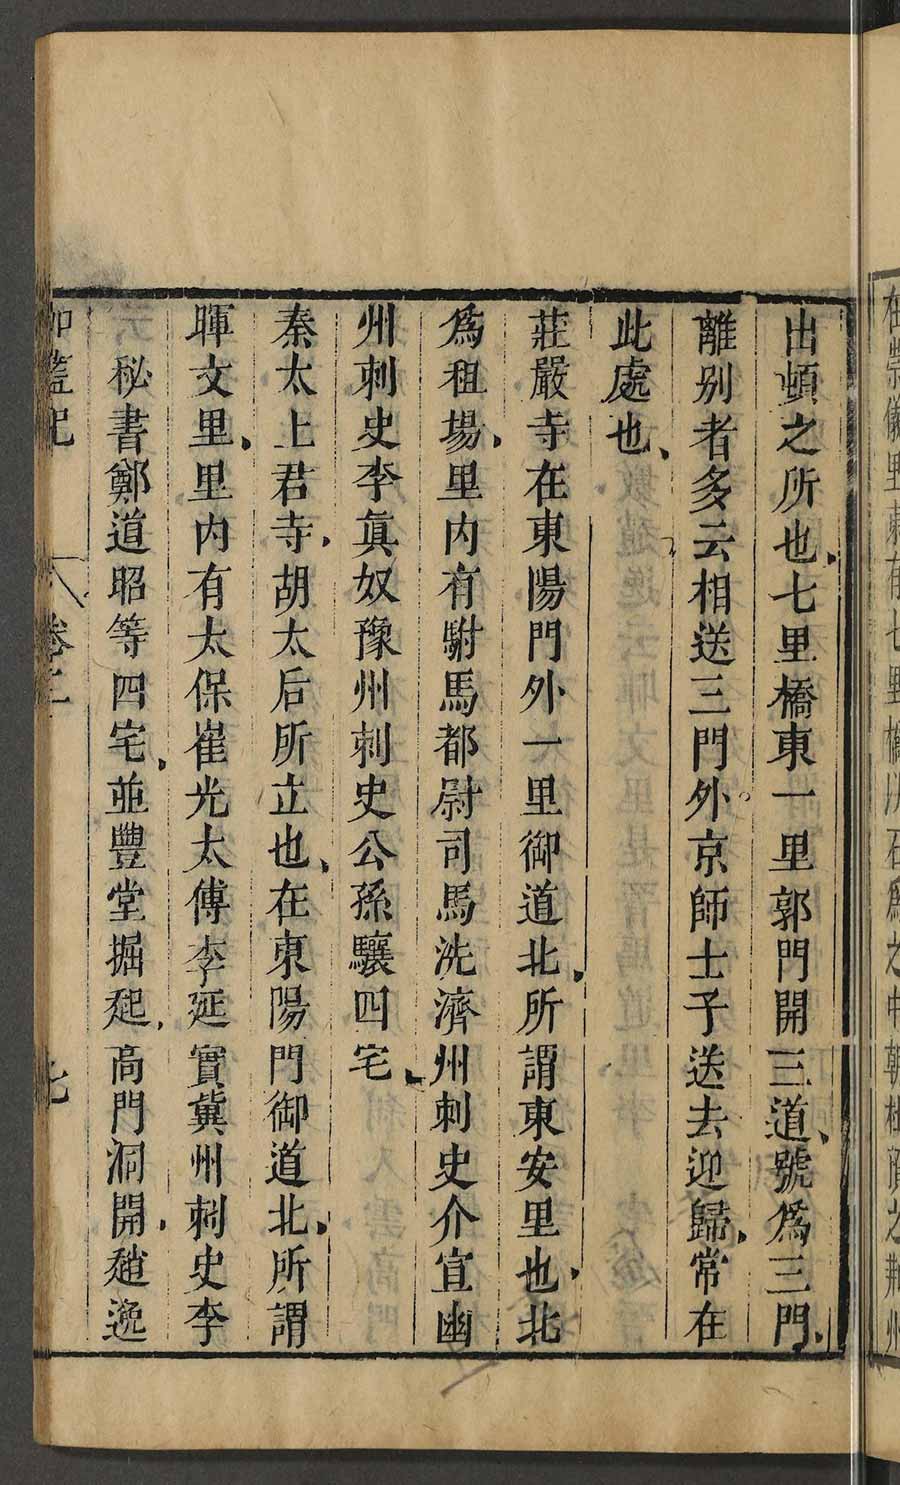 出頓之所也七里橋東一里郭門開三道號爲三門
離別者多云相送三門外京師士子送去迎歸常在
此處也
莊嚴寺在東陽門外一里御道北所謂東安里也北
爲租場里内有駙馬都尉司馬洗濟州刺史介宣幽
州刺史李眞奴豫州刺史公孫驤四宅
秦太上君寺胡太后所立也在東陽門御道北所謂
暉文里里内有太保崔光太傅李延實冀州刺史李
秘書鄭道昭等四宅並豐堂掘起高門洞開趙逸
卷二